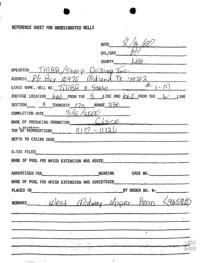 REFERENCE SHEET FOR UNDESIGNATED WELLS
DATE
OIL/GAS
COUNTY Lea
OPERATOR TMBR/Sharp Drilling Inc.
ADDRESS PO Box 10970 Midland TX 79702
LEASE NAME, WELL NO. TMBR
FOOTAGE LOCATION 660 FROM THE S LINE AND 660 FROM THE W LINE
SECTION TOWNSHIP 17S RANGE
COMPLETION DATE 3/5/2000
NAME OF PRODUCING FORMATION Cisco
TOP OF PERFORATIONS 11117 - 11126
DEPTH TO CASING SHOE
C-123 FILED
NAME OF POOL FOR WHICH EXTENSION WAS ASKED
ADVERTISED FOR HEARING CASE NO.
NAME OF POOL FOR WHICH EXTENSION WAS ADVERTISED
PLACED IN BY ORDER NO. R-
REMARKS West Midway Upper Penn